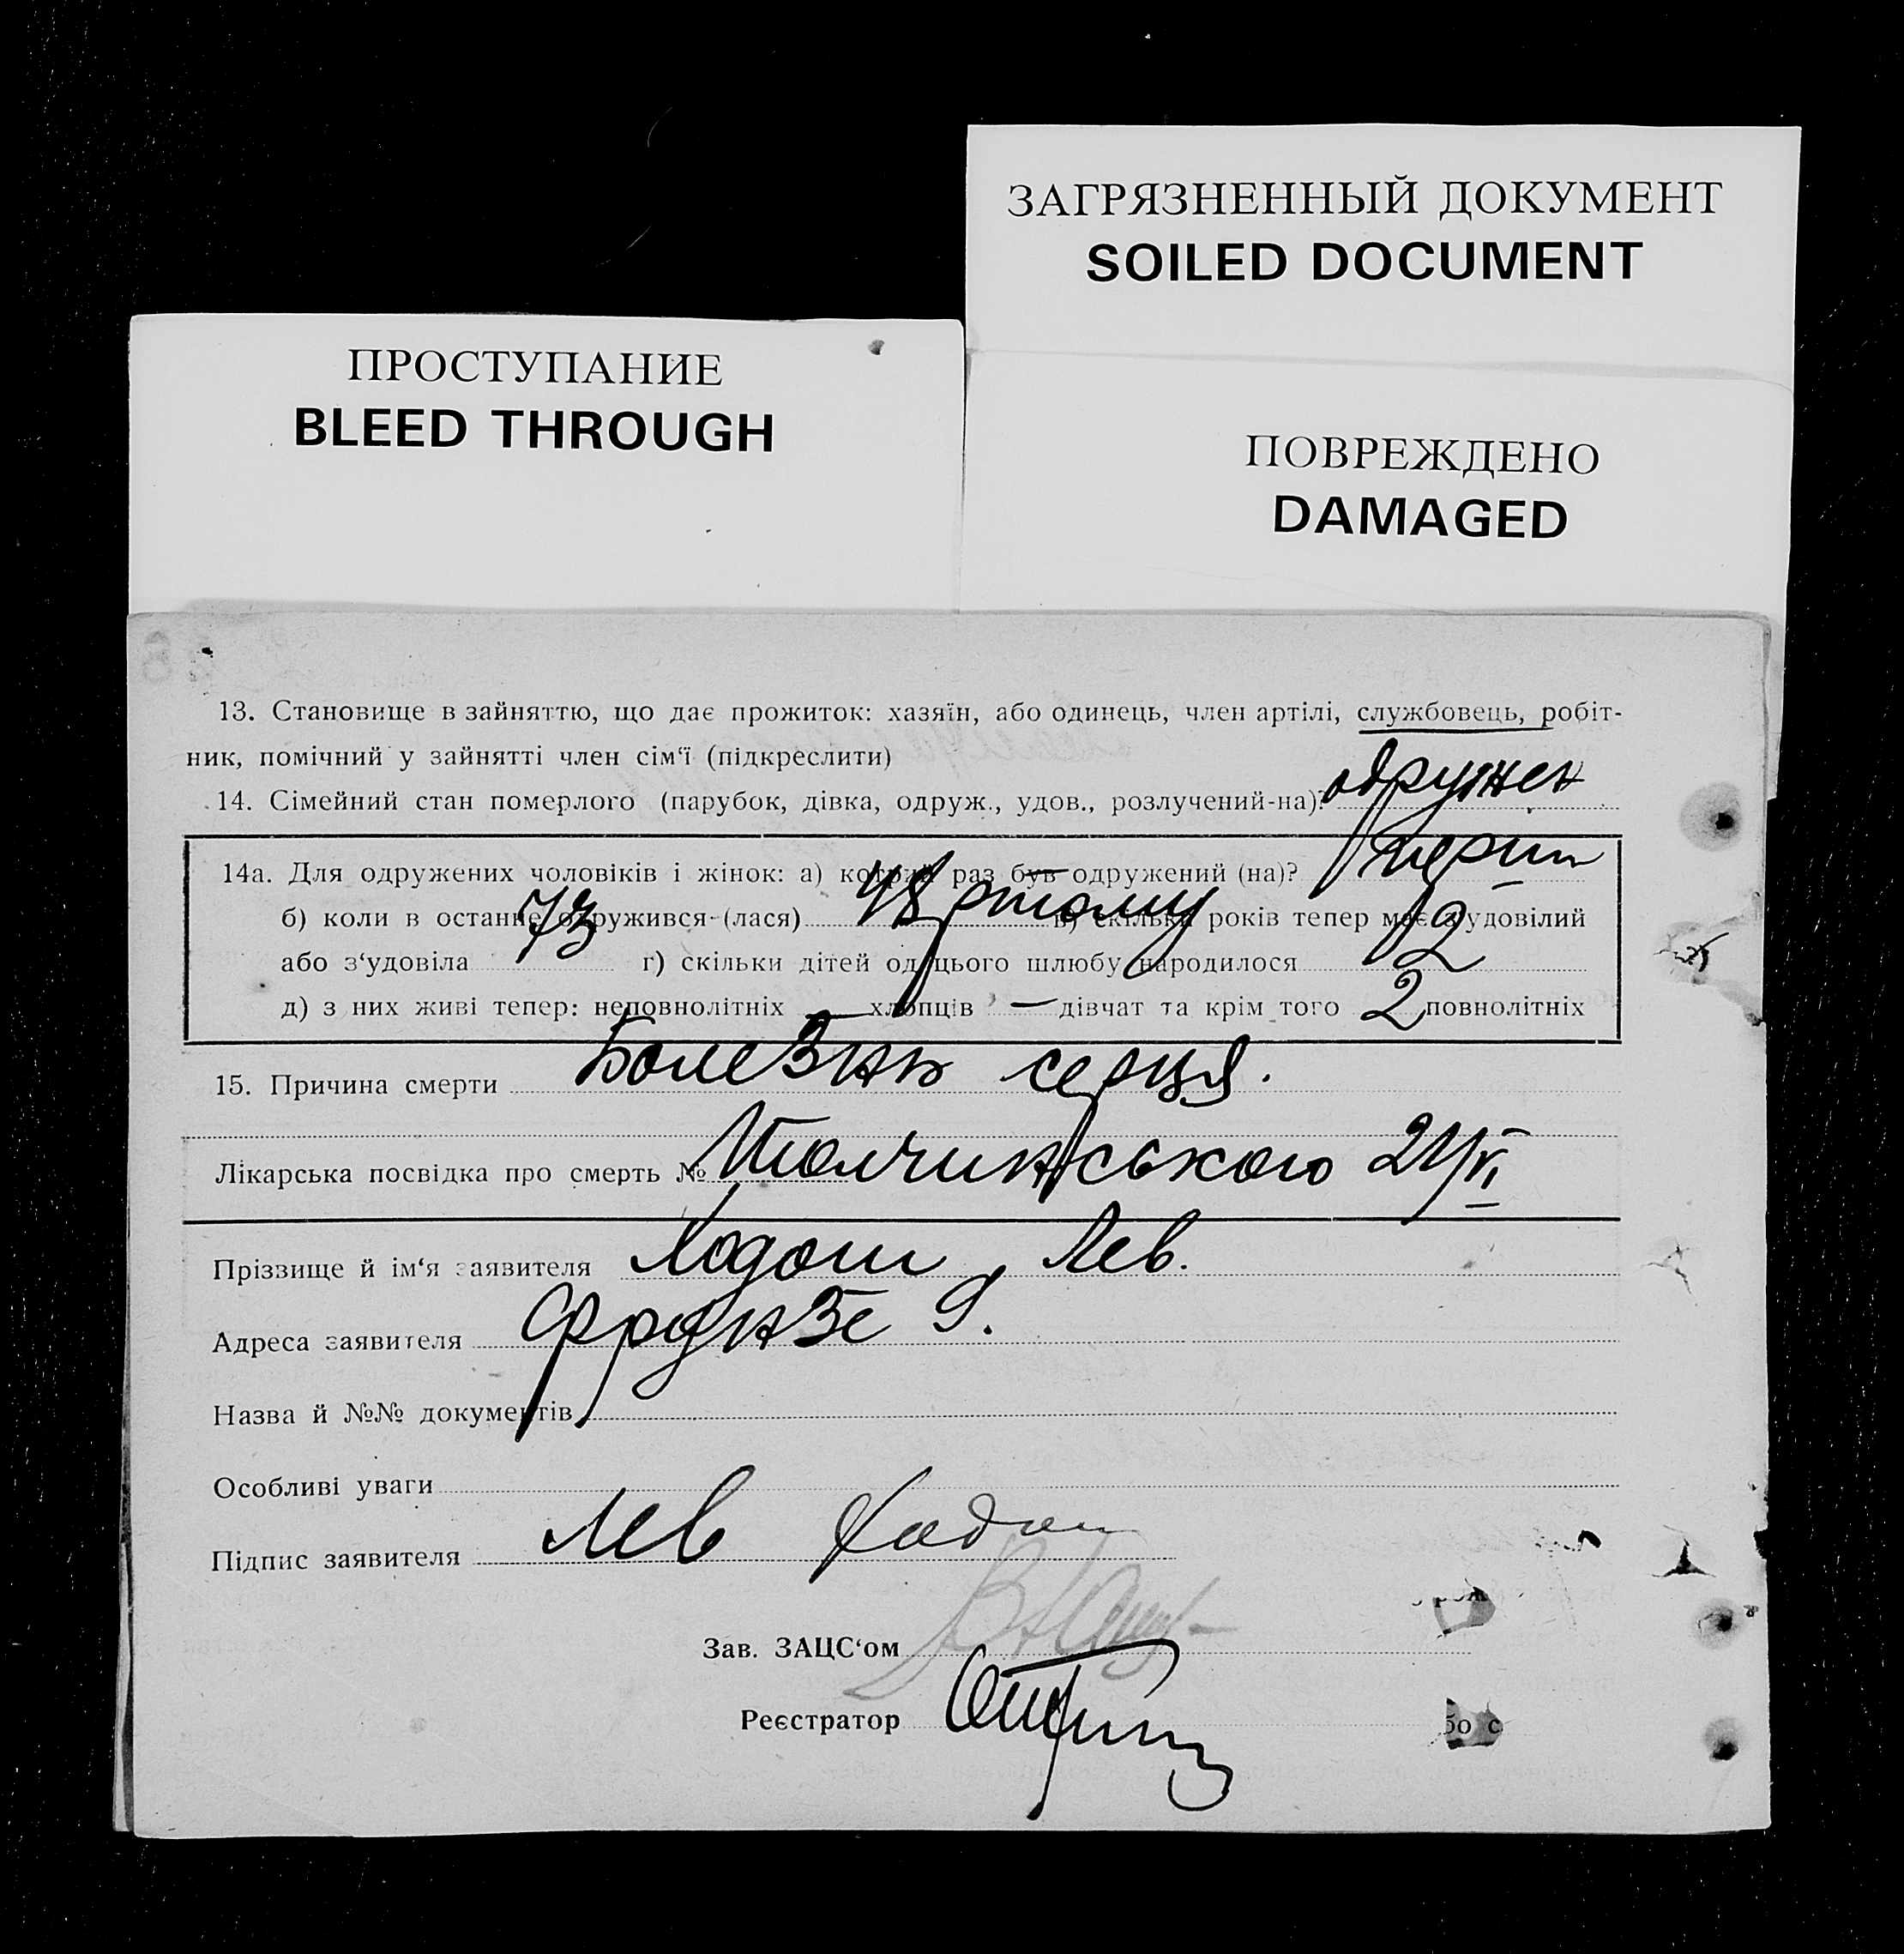 ЗАГРЯЗНЕННЫЙ ДОКУМЕНТ
SOILED DOCUMENT
ПРОСТУПАНИЕ
BLEED THROUGH
ПОВРЕЖДЕНО
DAMAGED
13. Становище в зайняттю, що дає прожиток: хазяїн, або одинець, член артілі, службовець, робіт-
ник, помічний у зайнятті член сім‘ї (підкреслити)
14. Сімейний стан померлого (парубок, дівка, одруж., удов., розлучений-на)? одружен
14а. Для одружених чоловіків і жінок: а) котрий раз був одружений (на)? перш
б) коли в останнє одружився-(лася) 48 р тому в) скільки років тепер має з‘удовілий
або з‘удовіла 73 г) скільки дітей од цього шлюбу народилося 2
д) з них живі тепер: неповнолітніх — хлопців — дівчат та крім того 2 повнолітніх
15. Причина смерти Болезнь серця.
Лікарська посвідка про смерть № 21/VI
Прізвище й ім‘я заявителя Ходош Лев.
Адреса заявителя Фрунзе 9.
Назва й №№ документів
Особливі уваги
Підпис заявителя Лев Ходош
Зав. ЗАЦС‘ом
Реєстратор
бо с